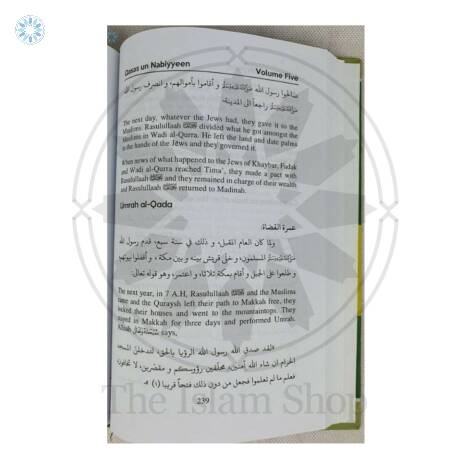 Qasas un Nabiyyeen
Volume Five
صالحوا رسول الله ﷺ و أقاموا بأموالهم، و انصرف رسول الله
ﷺ راجعاً الى المدينة.
The next day, whatever the Jews had, they gave it to the
Muslims. Rasulullaah ﷺ divided what he got amongst the
Muslims in Wadi al-Qurra. He left the land and date palms
to the hands of the Jews and they governed it.
When news of what happened to the Jews of Khaybar, Fadak
and Wadi al-Qurra reached Tima', they made a pact with
Rasulullaah ﷺ and they remained in charge of their wealth
and Rasulullaah ﷺ returned to Madinah.
Umrah al-Qada
عمرة القضاء:
ولما كان العام المقبل، و ذلك في سنة سبع، قدم رسول الله
ﷺ المسلمون، و خلى قريش بينه و بين مكة، و أقفلوا بيوتهم
و طلعوا على الجبل و أقام بمكة ثلاثا، و اعتمر، وهو قوله تعالى:
The next year, in 7 A.H, Rasulullaah ﷺ and the Muslims
came and the Quraysh left their path to Makkah free, they
locked their houses and went to the mountaintops. They
stayed in Makkah for three days and performed Umrah.
Allaah says,
«لقد صدق الله رسوله الرؤيا بالحق، لتدخلن المسجد
الحرام ان شاء الله آمنين، محلقين رؤوسكم و مقصرين، لا تخافون
فعلم ما لم تعلموا فجعل من دون ذلك فتحاً قريبا (١) »
239
The Islam Shop